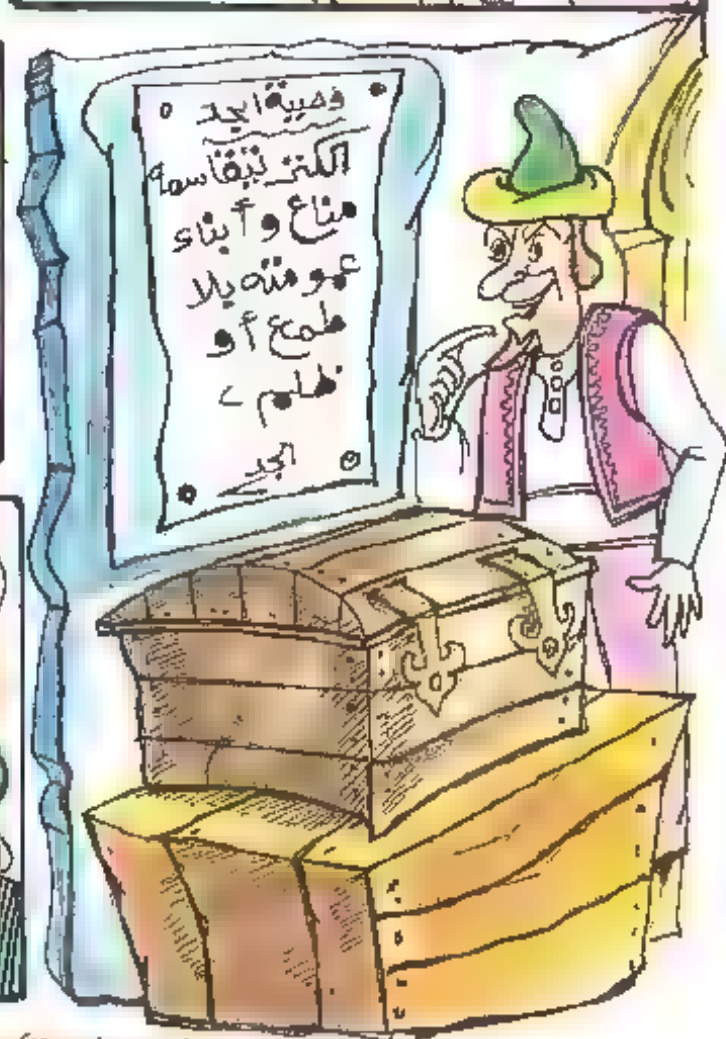 وصية الجد
الكنز تتقاسمه
مناع وأبناء
عمومته بلا
طمع أو
ظلم
الجد